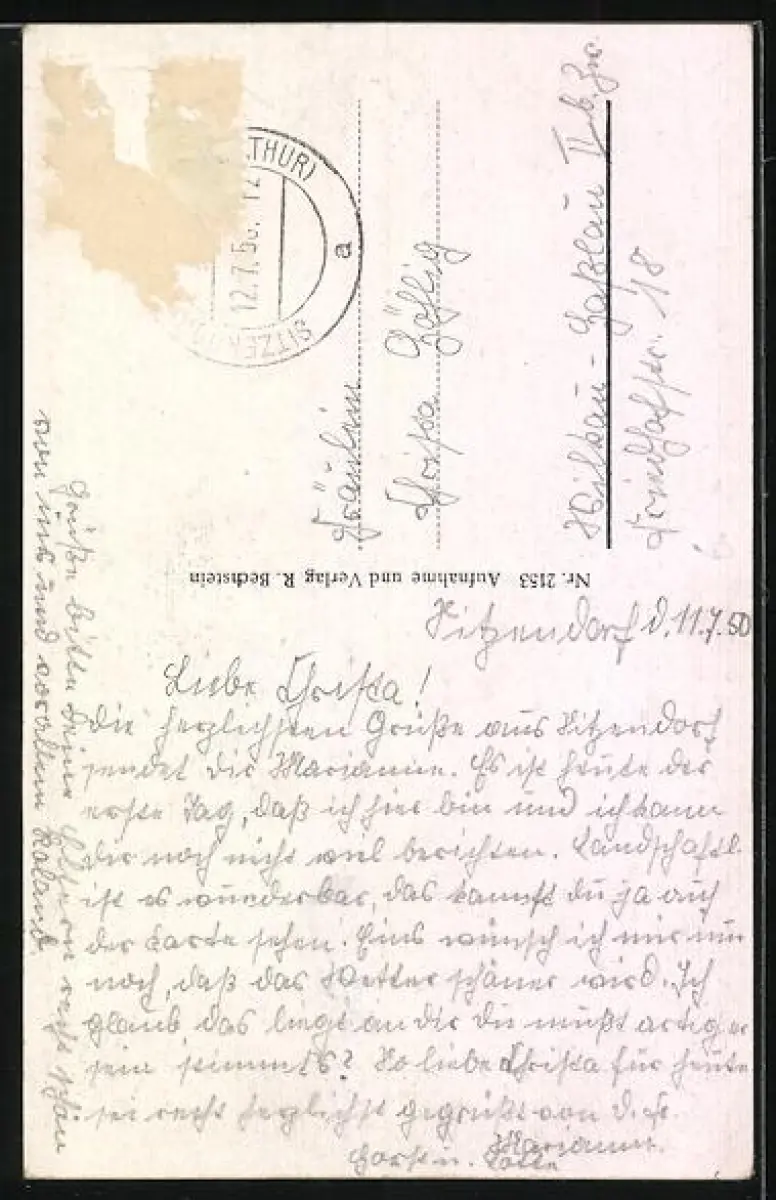 (THÜR)
12.7.50. 12
SITZEN
a
Fräulein
Christa
Wilkau-Haßlau II b. Zw.
Friedhofstr. 18
Nr. 2153 Aufnahme und Verlag R. Bechstein
Sitzendorf d. 11.7.50
Liebe Christa!
Die herzlichsten Grüße aus Sitzendorf
sendet dir Marianne. Es ist heute der
erste Tag, daß ich hier bin und ich kann
dir noch nicht viel berichten. Landschaftl.
ist es wunderbar, das kannst du ja auf
der Karte sehen. Eins wünsch ich mir nur
noch, daß das Wetter schöner wird. Ich
glaub das liegt an dir du mußt artiger
sein stimmts? So liebe Christa für heute
sei recht herzlichst gegrüßt von
Marianne.
Horst u.
Grüße bitte deine Eltern recht schön
von uns und vor allem Roland.